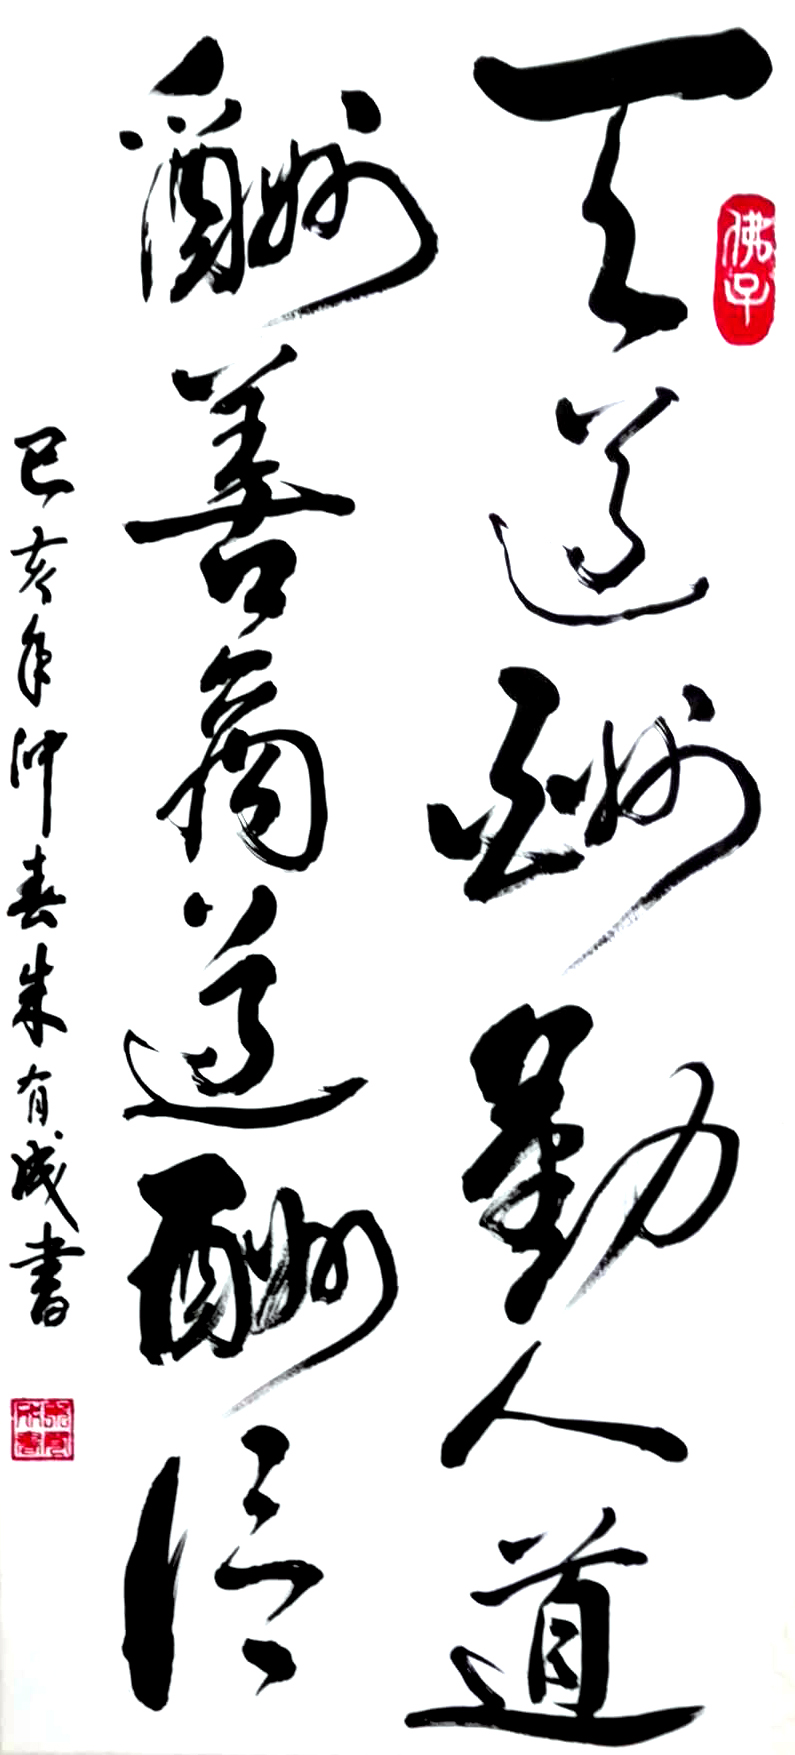 佛子
天道酬勤人道
酬善商道酬信
己亥年仲春朱有成書